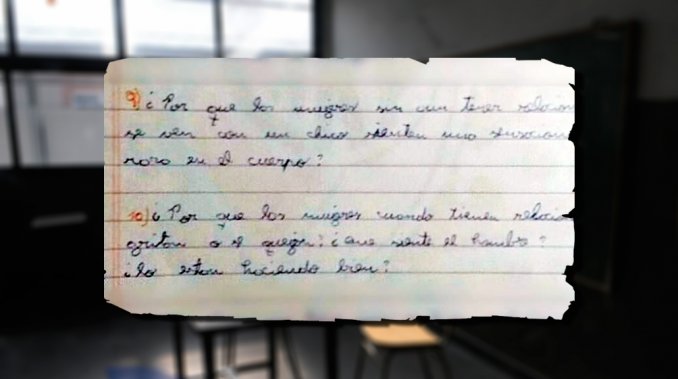 9) ¿Por que las mugres sin aun tener relacion
se ven con un chico sienten una sensacion
rara en el cuerpo?
10) ¿Por que las mugres cuando tienen relacio
gritan o se quejan? ¿que siente el hombre?
¿lo estan haciendo bien?